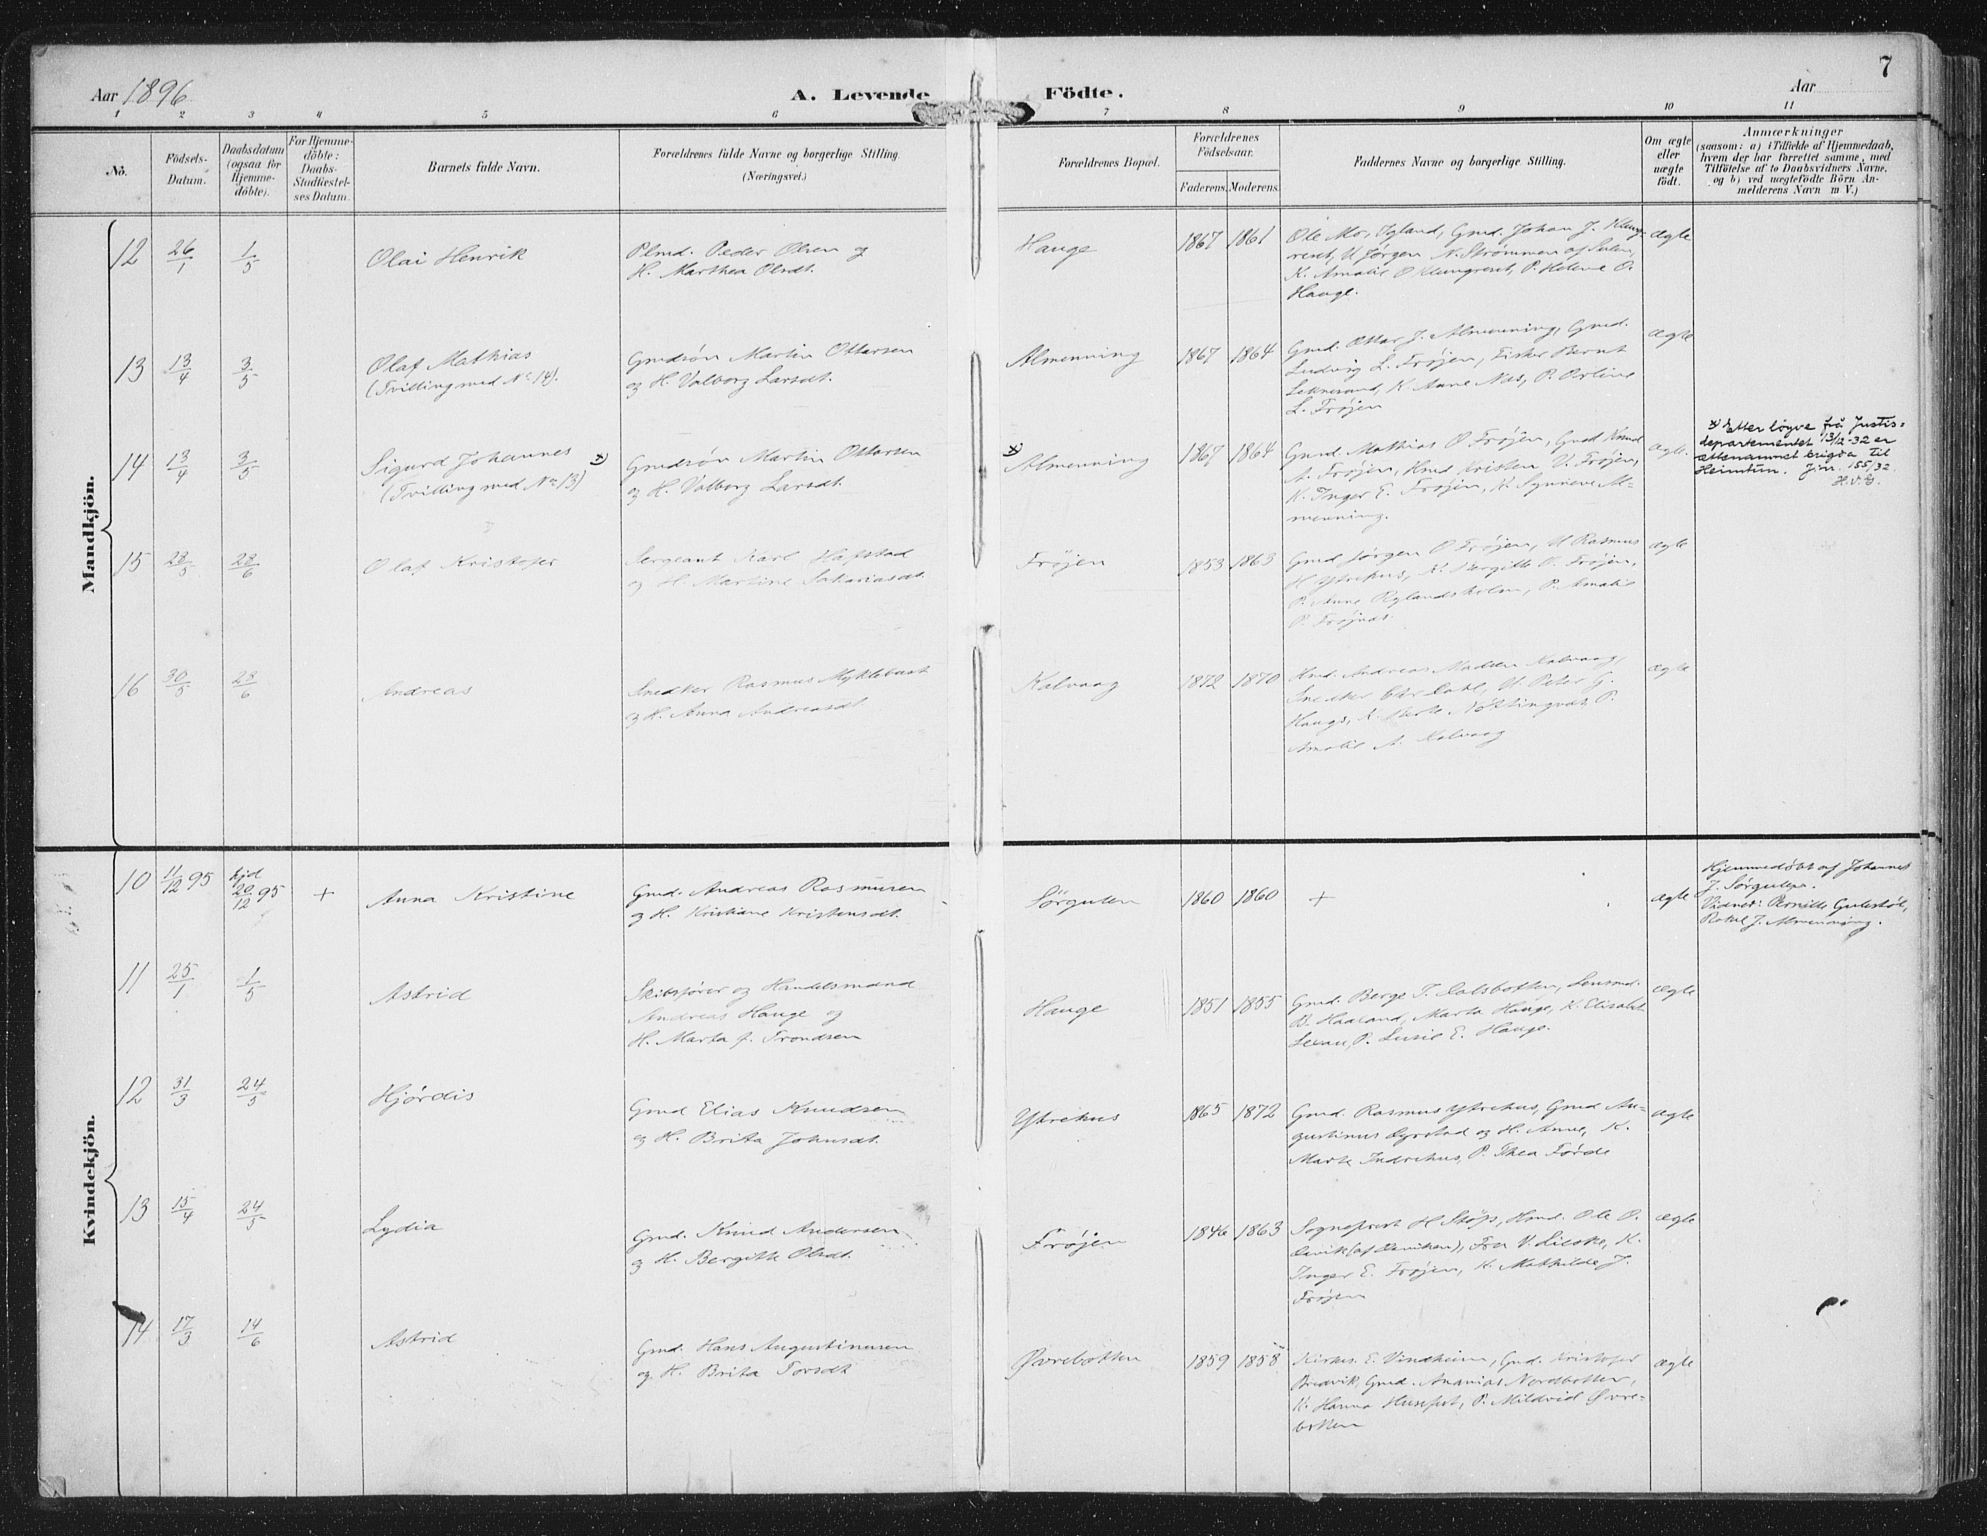 Aar 1896
A. Levende Födte.
Aar
7
1 2 3 4 5 6 7 8 9 10 11
No.
Födsels-
Datum.
Daabsdatum
(ogsaa for
Hjemme-
döbte).
For Hjemme-
döbte:
Daabs-
Stadfæstel-
ses Datum.
Barnets fulde Navn.
Forældrenes fulde Navne og borgerlige Stilling.
(Næringsvei.)
Forældrenes Bopæl.
Forældrenes
Födselsaar.
Faderens. Moderens.
Faddernes Navne og borgerlige Stilling.
Om ægte
eller
uægte
födt.
Anmærkninger
(saasom: a) i Tilfælde af Hjemmedaab,
hvem der har forrettet samme, med
Tilföielse af to Daabsvidners Navne,
og b) ved uægtefödte Börn An-
melderens Navn m V.)
Mandkjön.
12 26/1 1/5 Olai Henrik
Plmd. Peder Olsen og
H. Marthea Olsdt.
Hauge 1867 1861
Ole Mo, Igland, Gmd. Johan J. Klung-
reset, U Jørgen N. Strømmen af Sulen,
K. Amalie O Klungreset, P. Helene O.
Hauge.
ægte
13 13/4 3/5 Olaf Mathias
(Tvilling med No 14).
Gmdsøn Martin Ottarsen
og H. Valborg Larsdt.
Almenning 1867 1864
Gmd. Ottar J. Almenning, Gmd.
Ludvig L. Frøjen, Fisker Bernt
K. Anne Nes, P. Oline
L. Frøjen
ægte
14 13/4 3/5 Sigurd Johannes x)
(Tvilling med No 13)
Gmdsøn Martin Ottarsen
og H. Valborg Larsdt.
x) Almenning 1867 1864
Gmd. Mathias O Frøjen, Gmd Knud
A. Frøjen, Kmd Kristen V. Frøjen,
K. Inger E. Frøjen, K. Synneve Al-
menning.
ægte.
x) Etter løyve frå Justis-
departementet 13/2-32 er
ettenamnet brigda til
Heimtun. Jnr. 155/32.
H.V.
15 28/5 28/6 Olaf Kristofer
Sergeant Karl Hafstad
og H. Martine Sakariasdt.
Frøjen 1853 1863
Gmd Jørgen O Frøjen, U Rasmus
H Ytrehus, K. Bergitte O. Frøjen,
P. Anne Rylandsholm, P. Amalie
P. Frøjnes.
ægte
16 30/5 28/6 Andreas
Snedker Rasmus Myklebust
og H. Anna Andreasdt.
Kalvaag 1872 1870
Kmd. Andreas Madsen Kalvaag,
Snedker Chr Dahl, U. Peter G.
Hauge, K. Berte Nøttingnes, P.
Amalie A. Kalvaag
ægte
Kvindekjön.
10 11/12 95 hjd 20/12 95 + Anna Kristine
Gmd. Andreas Rasmusen
og H. Kristiane Kristensdt.
Sørgulen 1860 1860 +
ægte
Hjemmedøbt af Johannes
J. Sørgulen.
Vidner: Pernille Gulestøl,
Rakel J. Almenning.
11 25/1 1/5 Astrid
Skibsfører og Handelsmand
Andreas Hauge og
H. Marta f. Trondsen
Hauge 1851 1855
Gmd. Berge T. Dalsbotten, Lensmd.
B. Haaland, Marta Hauge, K. Elisabet
Lexau, P. Lusie E. Hauge.
ægte
12 31/3 24/5 Hjørdis
Gmd Elias Knudsen
og H. Brita Johnsdt.
Ytrehus 1865 1872
Gmd. Rasmus Ytrehus, Gmd Au-
gustinus Dyrstad og H. Anne, K.
Marte Indrehus, P. Thea Førde
ægte
13 15/4 24/5 Lydia
Gmd. Knud Andersen
og H. Bergitte Olsdt.
Frøjen 1846 1863
Sogneprest H. Støp, Kmd. Ole O.
Fru V. Lieske, K.
Inger E. Frøjen, K. Mathilde J.
Frøjen
ægte
14 17/3 14/6 Astrid
Gmd. Hans Augustinusen
og H. Brita Torsdt
Øvrebotten 1859 1858
Kirkes. E. Vindheim, Gmd. Kristofer
Bredvik, Gmd. Ananias Nordbotten,
K. Hanna Husefest, P. Mildrid Øvre-
botten
ægte